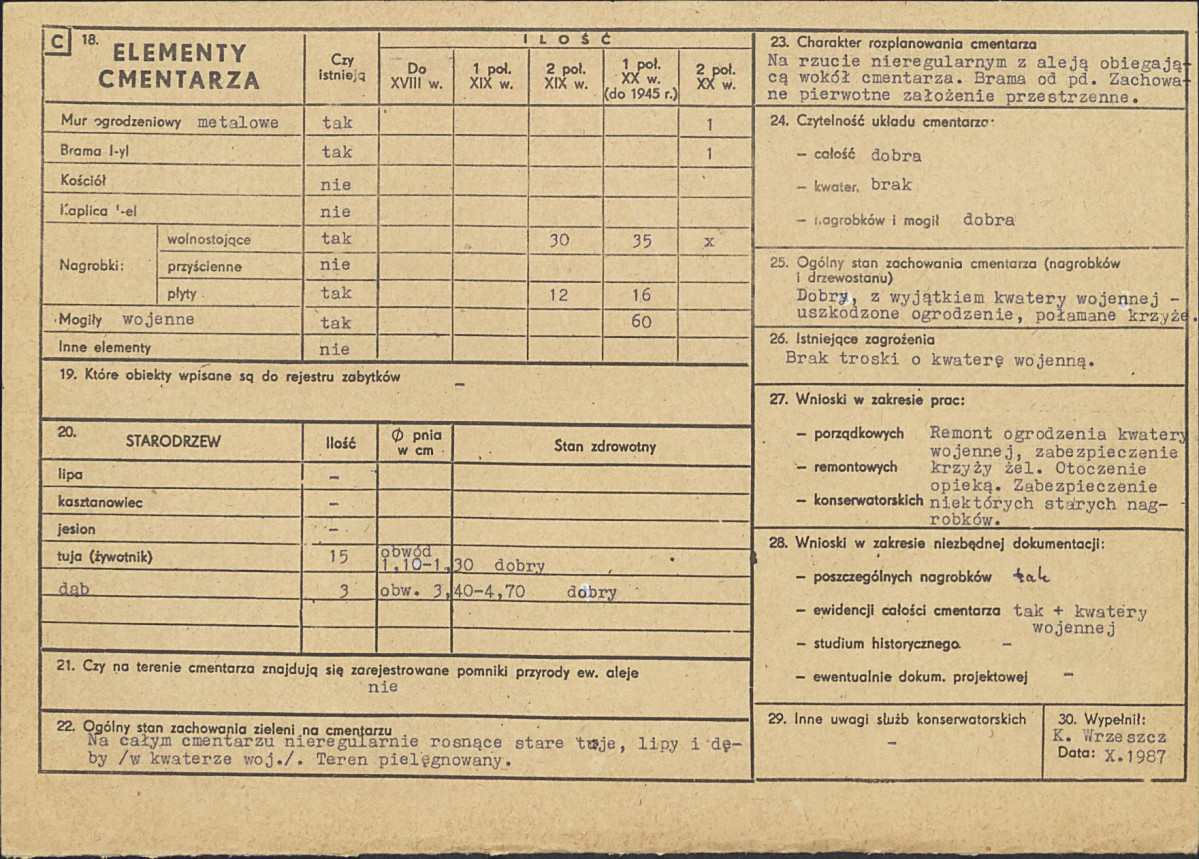 C 18. ELEMENTY CMENTARZA
Czy istnieją
ILOŚĆ
Do XVIII w.
1 poł. XIX w.
2 poł. XIX w.
1 poł. XX w. (do 1945 r.)
2 poł. XX w.
Mur ogrodzeniowy metalowe tak 1
Brama /-y/ tak 1
Kościół nie
Kaplica /-e/ nie
Nagrobki:
wolnostojące tak 30 35 x
przyścienne nie
płyty tak 12 16
Mogiły wojenne tak 60
Inne elementy nie
19. Które obiekty wpisane są do rejestru zabytków –
20. STARODRZEW Ilość Ø pnia w cm Stan zdrowotny
lipa –
kasztanowiec –
jesion –
tuja (żywotnik) 15 obwód 1,10-1,30 dobry
dąb 3 obw. 3,40-4,70 dobry
21. Czy na terenie cmentarza znajdują się zarejestrowane pomniki przyrody ew. aleje
nie
22. Ogólny stan zachowania zieleni na cmentarzu
Na całym cmentarzu nieregularnie rosnące stare tuje, lipy i dę-
by /w kwaterze woj./. Teren pielęgnowany.
23. Charakter rozplanowania cmentarza
Na rzucie nieregularnym z aleją obiegają-
cą wokół cmentarza. Brama od pd. Zachowa-
ne pierwotne założenie przestrzenne.
24. Czytelność układu cmentarza
– całość dobra
– kwater, brak
– nagrobków i mogił dobra
25. Ogólny stan zachowania cmentarza (nagrobków
i drzewostanu)
Dobry, z wyjątkiem kwatery wojennej -
uszkodzone ogrodzenie, połamane krzyże.
26. Istniejące zagrożenia
Brak troski o kwaterę wojenną.
27. Wnioski w zakresie prac:
– porządkowych
– remontowych
– konserwatorskich
Remont ogrodzenia kwatery
wojennej, zabezpieczenie
krzyży żel. Otoczenie
opieką. Zabezpieczenie
niektórych starych nag-
robków.
28. Wnioski w zakresie niezbędnej dokumentacji:
– poszczególnych nagrobków tak
– ewidencji całości cmentarza tak + kwatery
wojennej
– studium historycznego –
– ewentualnie dokum. projektowej –
29. Inne uwagi służb konserwatorskich
–
30. Wypełnił:
K. Wrzeszcz
Data: X.1987